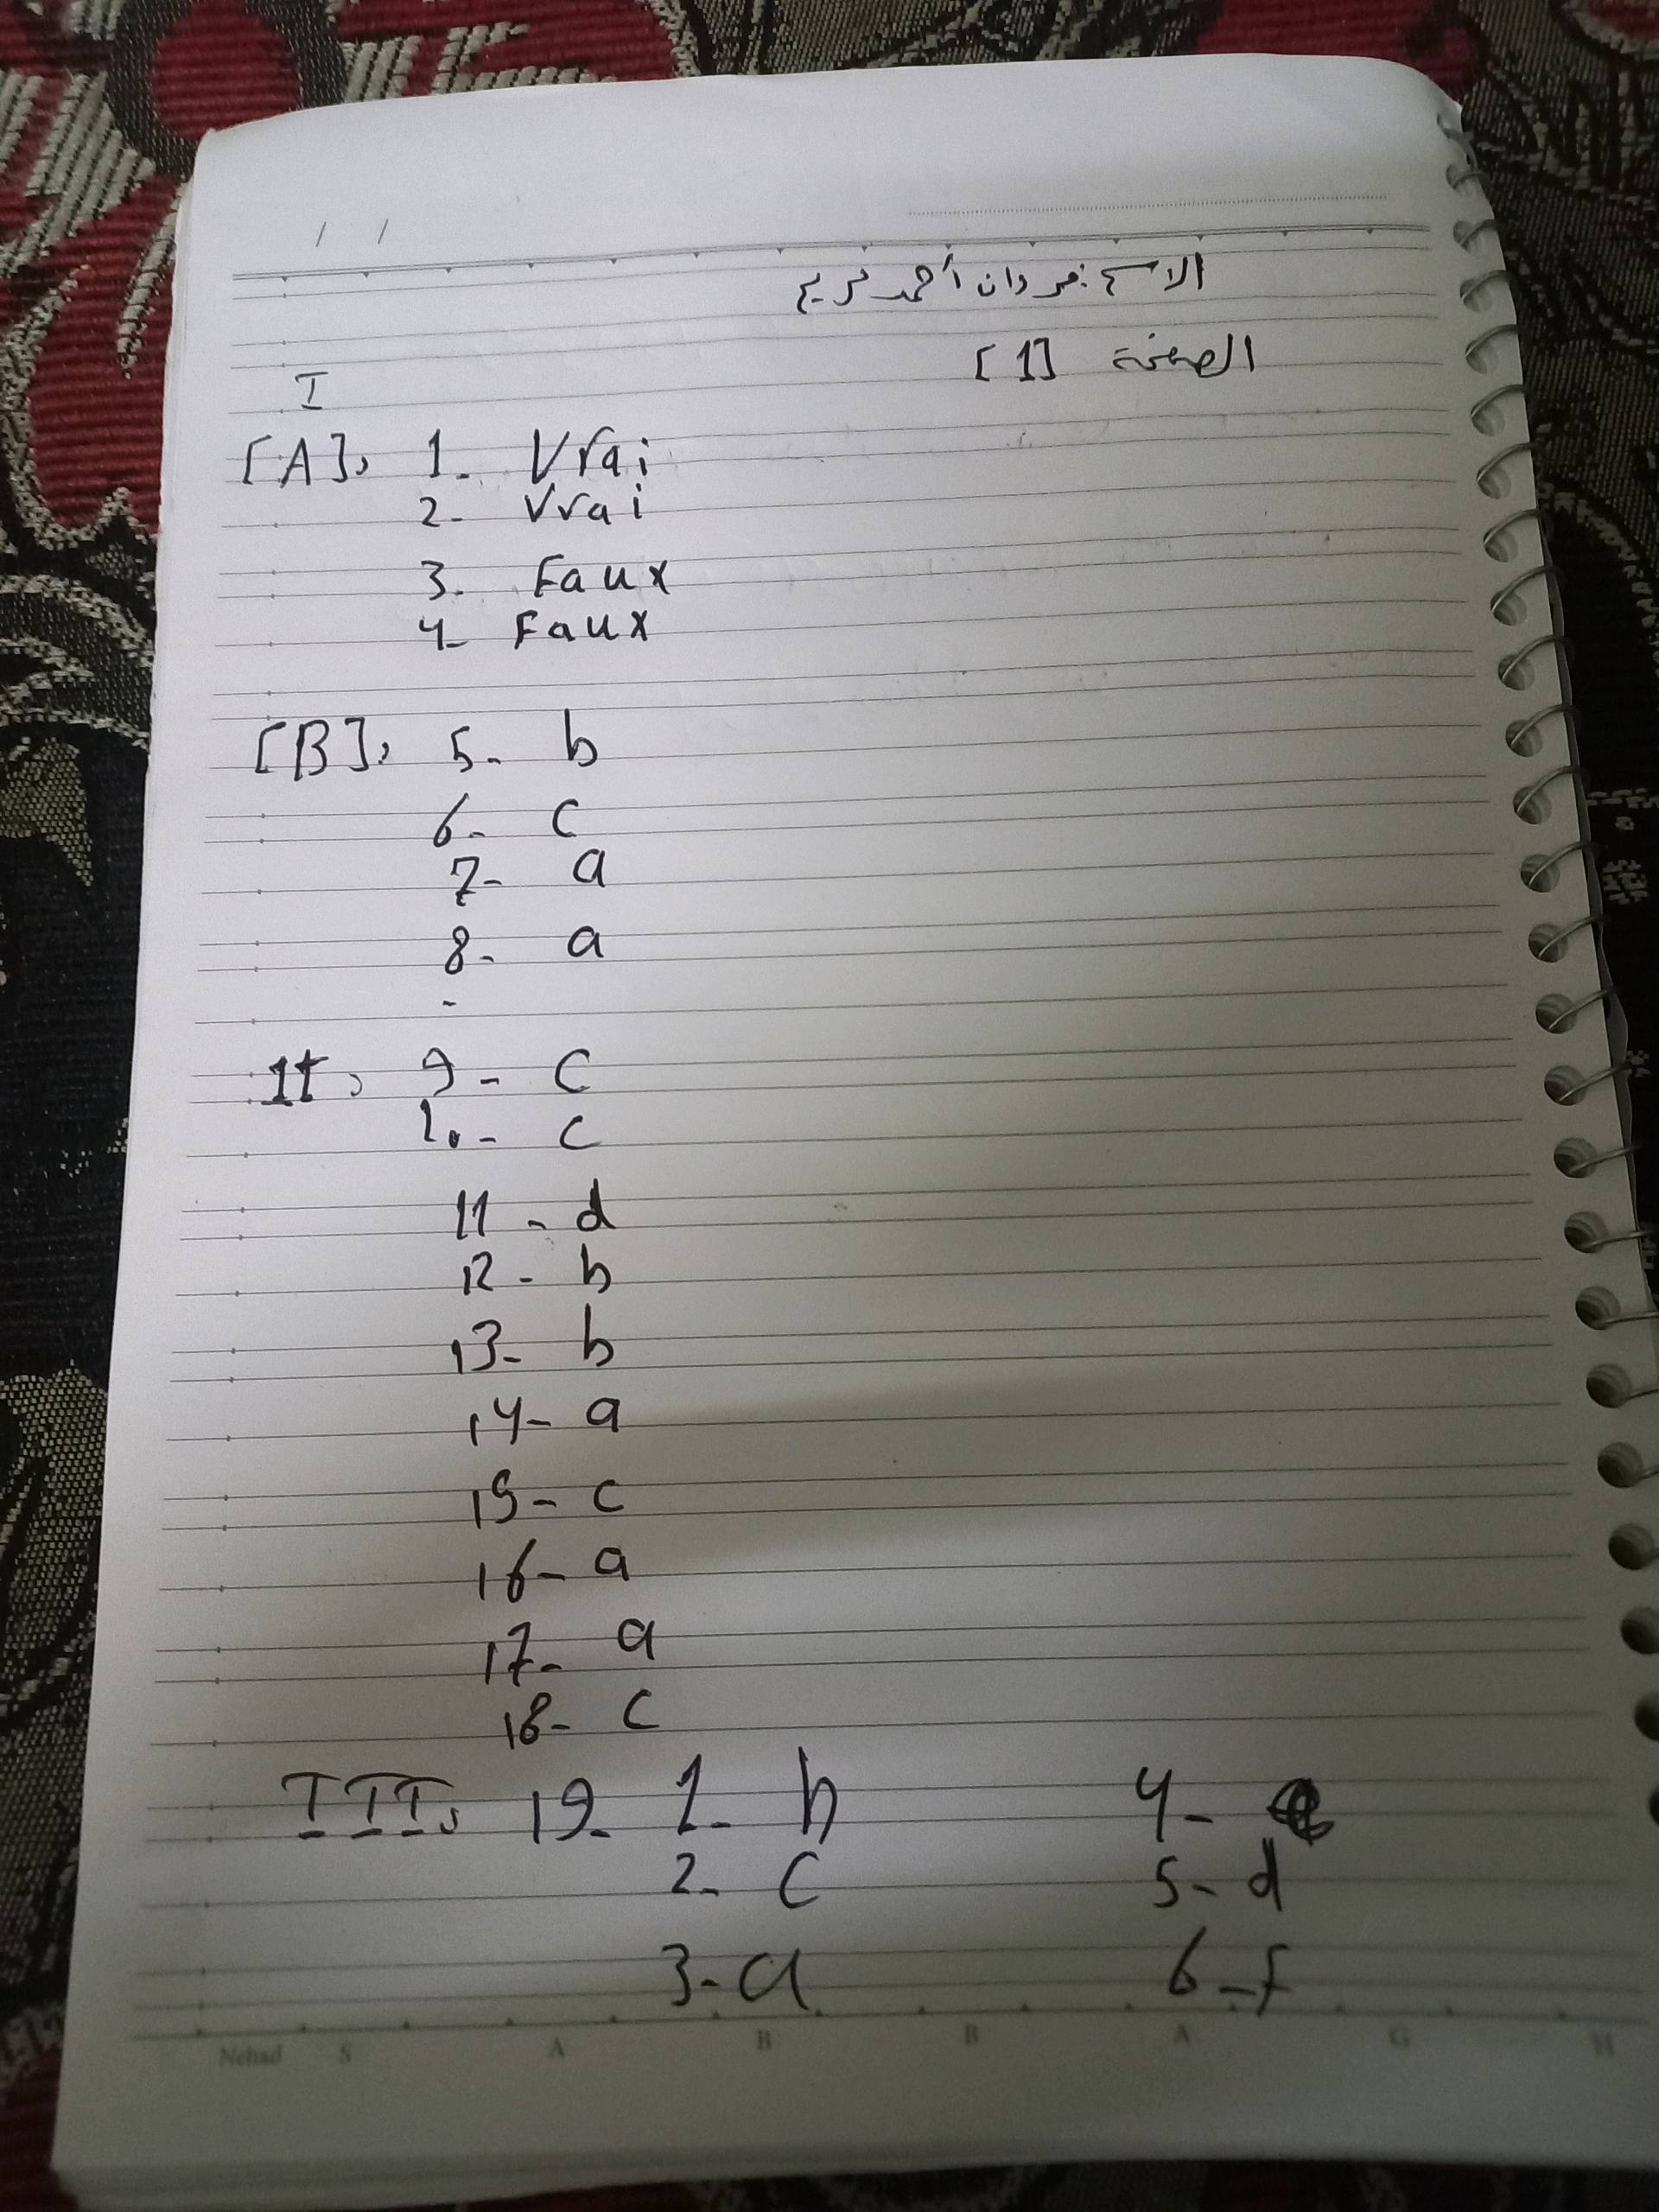 / /
الاسم: مروان أحمد كريم
الصفحة [1]
I
[A], 1- Vrai
2- Vrai
3- Faux
4- Faux
[B], 5- b
6- c
7- a
8- a
-
II, 9- c
10- c
11- d
12- b
13- b
14- a
15- c
16- a
17- a
18- c
III, 19- 1- b 4- e
2- c 5- d
3- a 6- f
Nehad S A B B A G H